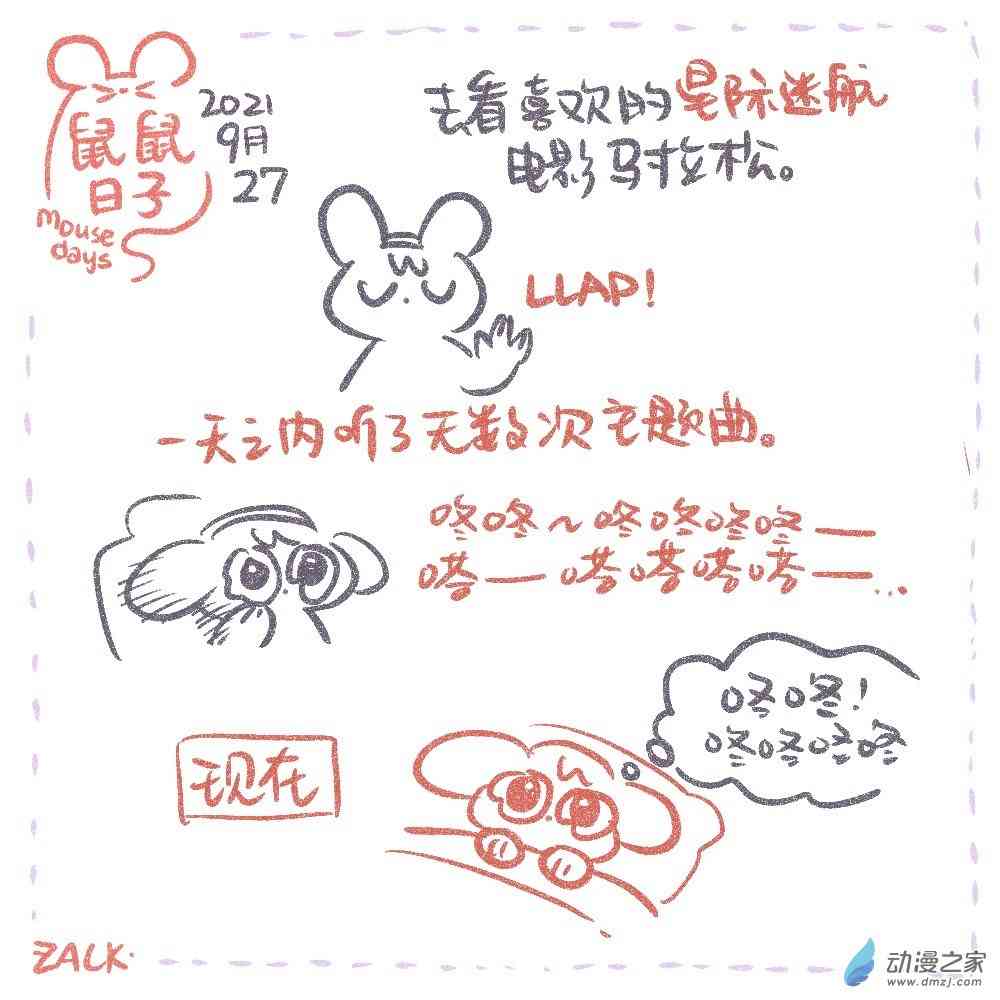 鼠鼠
日子
mouse
days
2021
9月
27
去看喜欢的星际迷航
电影马拉松。
LLAP!
一天之内听了无数次主题曲。
咚咚~咚咚咚咚——
嗒——嗒嗒嗒嗒——...
咚咚!
咚咚咚咚
现在
ZALK.
动漫之家
www.dmzj.com